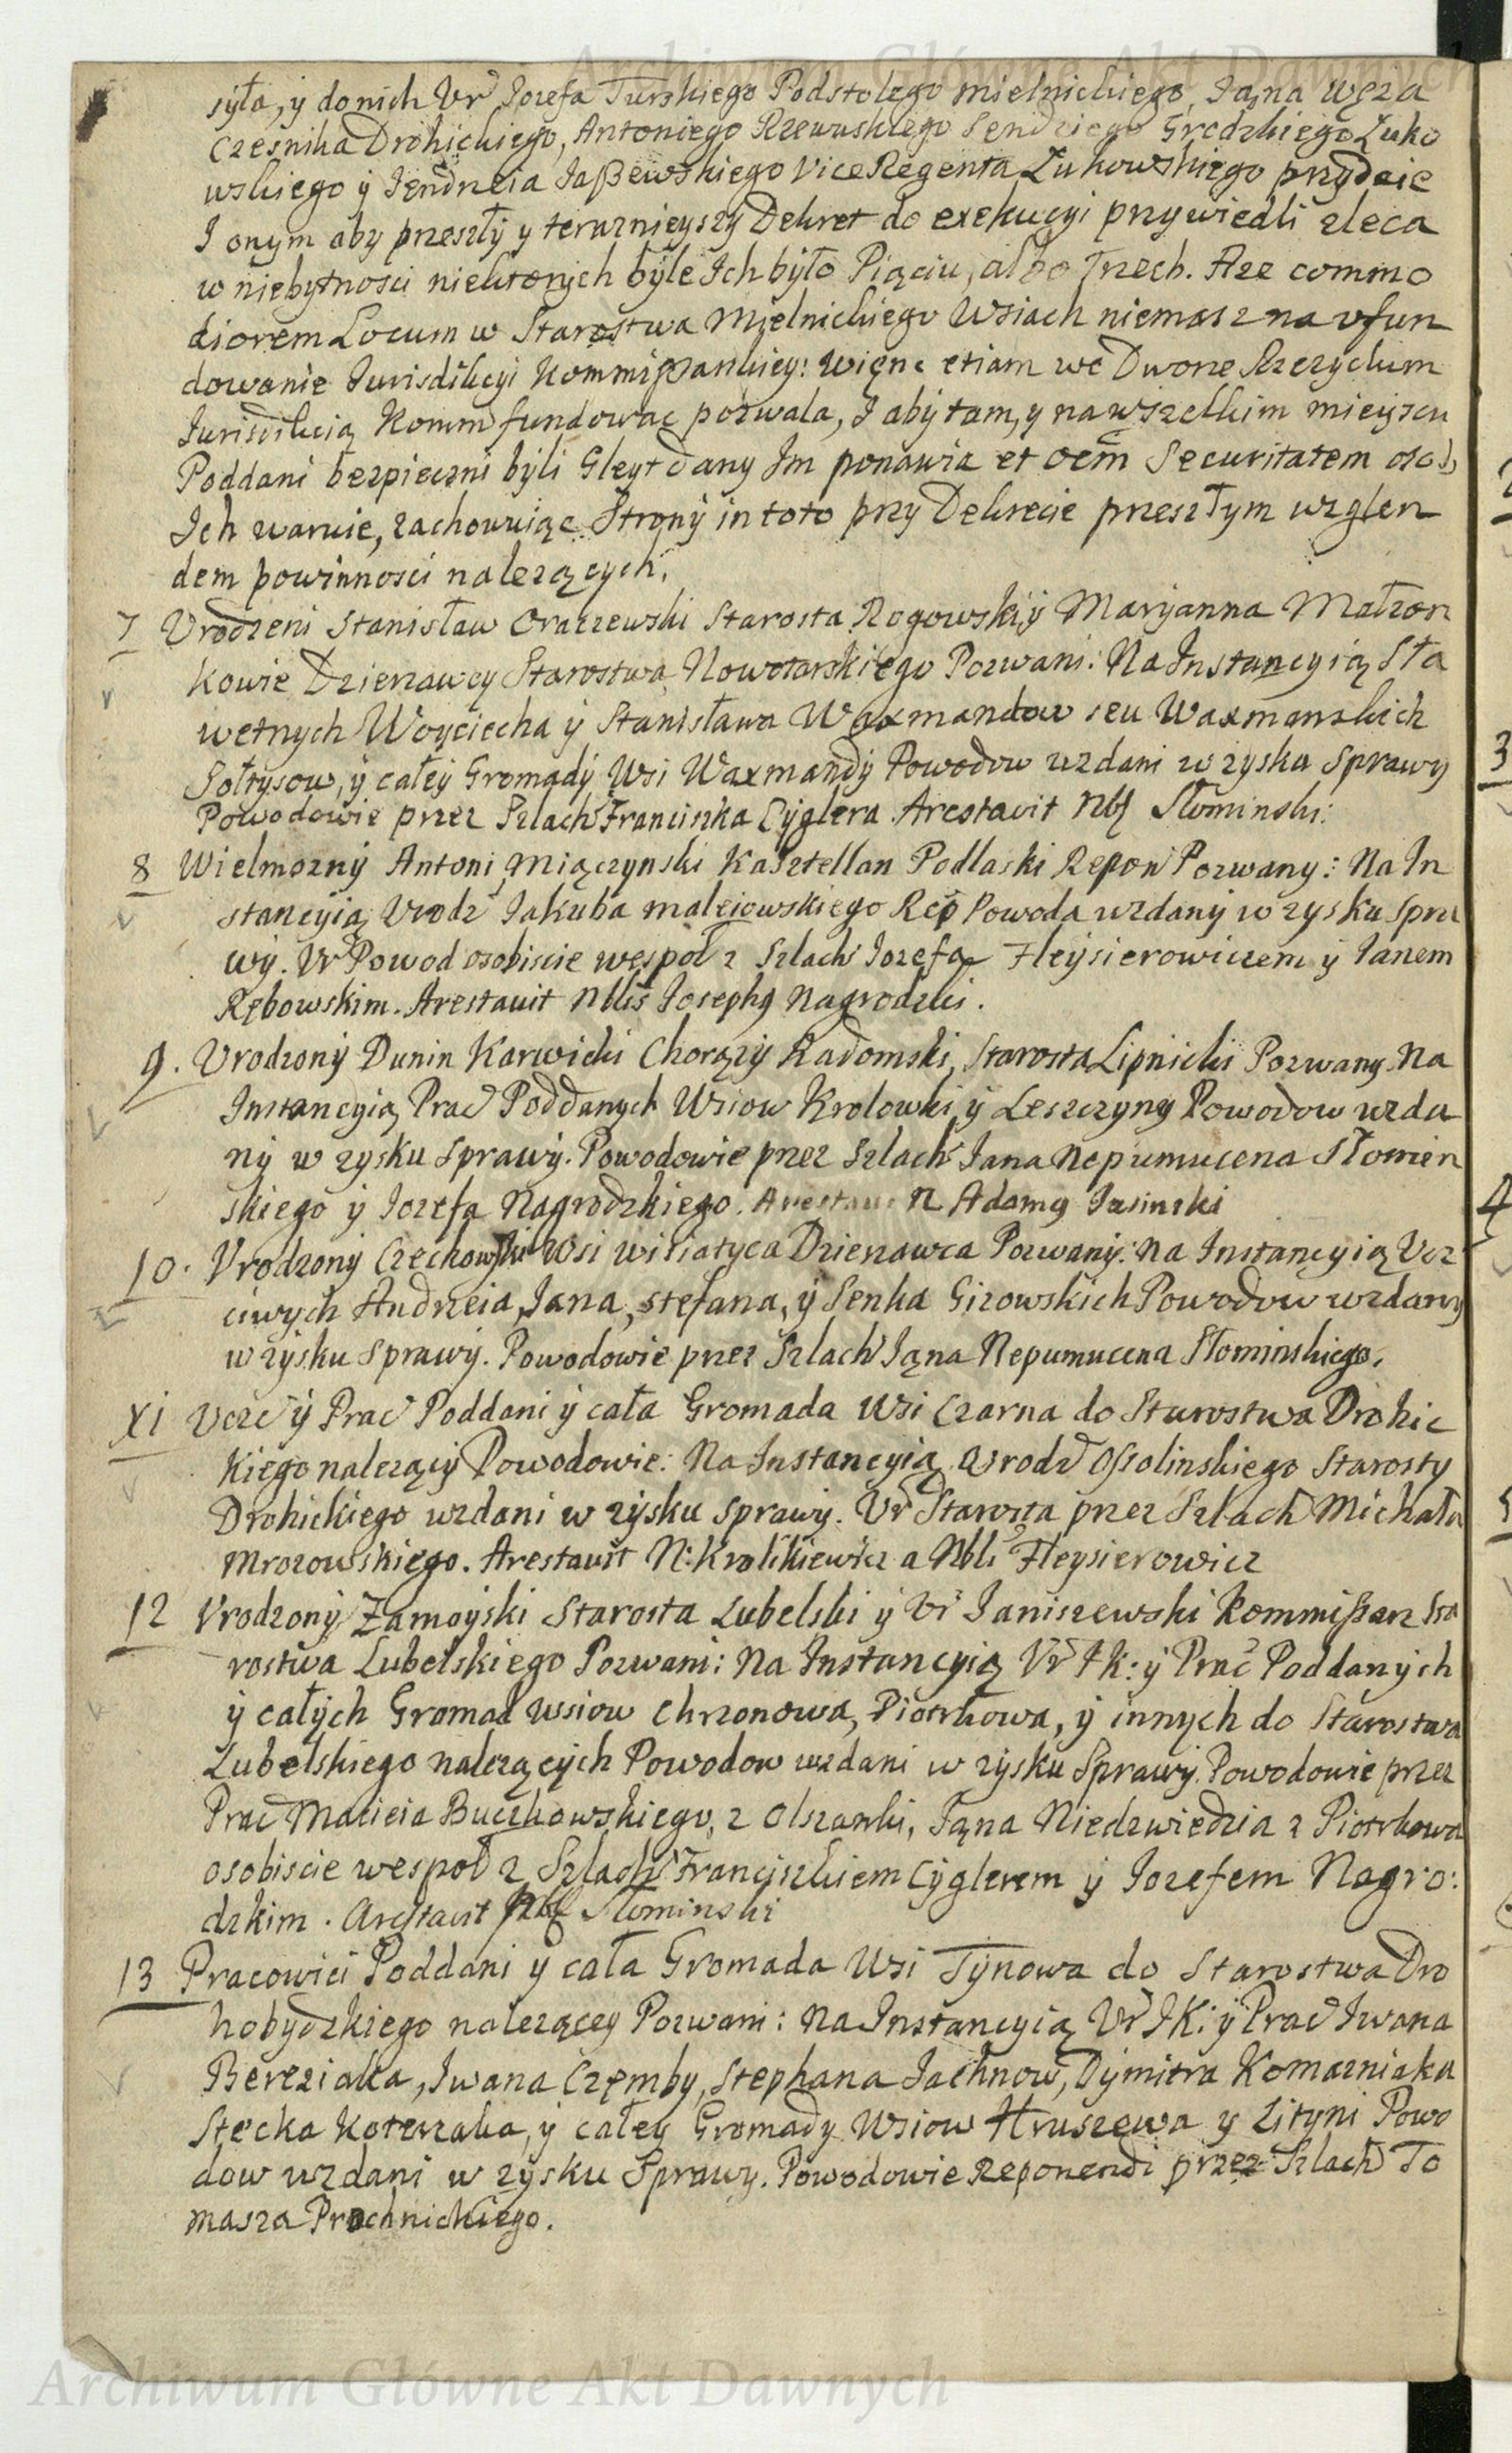 syła, y do nich Vr Jozefa Turskiego Podstolego mielnickiego, Jana Węża
Czesnika Drohickiego, Antoniego Rzewuskiego Sendziego Grodzkiego Łuko
wskiego y Jendrzeia Jaßewskiego Vice Regenta Łukowskiego przydaie
I onym aby przeszły y teraznieyszy Dekret do exekucyi przywiedli zleca
w niebytnosci niektorych byle Ich było Piąciu, albo Trzech. A ze commo
diorem Locum w Starostwa Mielnickiego Wsiach niemasz na vfun
dowanie Iurisdikcyi Kommißarskiey: więnc etiam we Dworze Rzeczyckim
Jurisdikcią Komm fundować pozwala, I aby tam, y na wszelkim mieyscu
Poddani bezpieczni byli Gleyt dany Im ponawia et oem Securitatem osob
Ich waruie, zachowuiąc Strony in toto przy Dekrecie przeszłym wzglen
dem powinnosci nalezących.
7 Vrodzeni Stanisław Oraczewski Starosta Rogowski, y Maryanna Małzon
kowie Dzierzawcy Starostwa Nowotarskiego Pozwani: Na Instancyią Sła
wetnych Woyciecha y Stanisława Waxmandow seu Waxmanskich
Sołtysow, y całey Gromady Wsi Waxmandy Powodow wzdani w zysku Sprawy
Powodowie przez Szlach Franciszka Cyglera. Arestavit Nbl Słominski:
8 Wielmozny Antoni Miączynski Kasztellan Podlaski Repon Pozwany: Na In
stancyią Vrodz Jakuba maleiowskiego Rep Powoda wzdany w zysku Spra
wy. Vr Powod osobiscie wespoł z Szlach Jozefa Fleysierowiczem y Janem
Rębowskim. Arestavit Nblis Josephg Nagrodzki.
9. Vrodzony Dunin Karwicki Chorązy Radomski, Starosta Lipnicki Pozwany. Na
Instancyią Prac Poddanych Wsiow Krolowki y Leszczyny Powodow wzda
ny w zysku Sprawy. Powodowie przez Szlach Jana Nepumucena Słomin
skiego y Jozefa Nagrodzkiego. Arestavit N Adamg Jasinski
10. Vrodzony Czechowski Wsi Witiatyca Dzierzawca Pozwany: Na Instancyią Vcz
ciwych Andrzeia, Jana, Stefana, y Senka Gizowskich Powodow wzdany
w zysku Sprawy. Powodowie przez Szlach Jana Nepumucena Słominskiego.
XI Vczc y Prac Poddani y cała Gromada Wsi Czarna do Starostwa Drohic
kiego nalezący Powodowie: Na Instancyią Vrodz Ossolinskiego Starosty
Drohickiego wzdani w zysku Sprawy. Vr Starosta przez Szlach Michała
Mrozowskiego. Arestavit N: Krolikiewicz a Nbli Fleysierowicz
12 Vrodzony Zamoyski Starosta Lubelski y Vr Janiszewski Kommißarz Sta
rostwa Lubelskiego Pozwani: Na Instancyią Vr I K: y Prac Poddanych
y całych Gromad Wsiow Chrzonowa, Piotrkowa, y innych do Starostwa
Lubelskiego nalezących Powodow wzdani w zysku Sprawy. Powodowie przez
Prac Macieia Buczkowskiego, z Olszanki, Jana Niedzwiedzia z Piotrkowa
osobiscie wespoł z Szlach Franciszkiem Cyglerem y Jozefem Nagro:
dzkim. Arestavit Nbl Słominski
13 Pracowici Poddani y cała Gromada Wsi Tynowa do Starostwa Dro
hobydzkiego nalezącey Pozwani: Na Instancyią Vr I K: y Prac Iwana
Bereziaka, Iwana Czemby, Stephana Jachnow, Dymitra Komarniaka
Stecka Koterzaka, y całey Gromady Wsiow Hruszewa y Lityni Powo
dow wzdani w zysku Sprawy. Powodowie Reponendi przez Szlach To
masza Prochnickiego.
3
4
Archiwum Główne Akt Dawnych